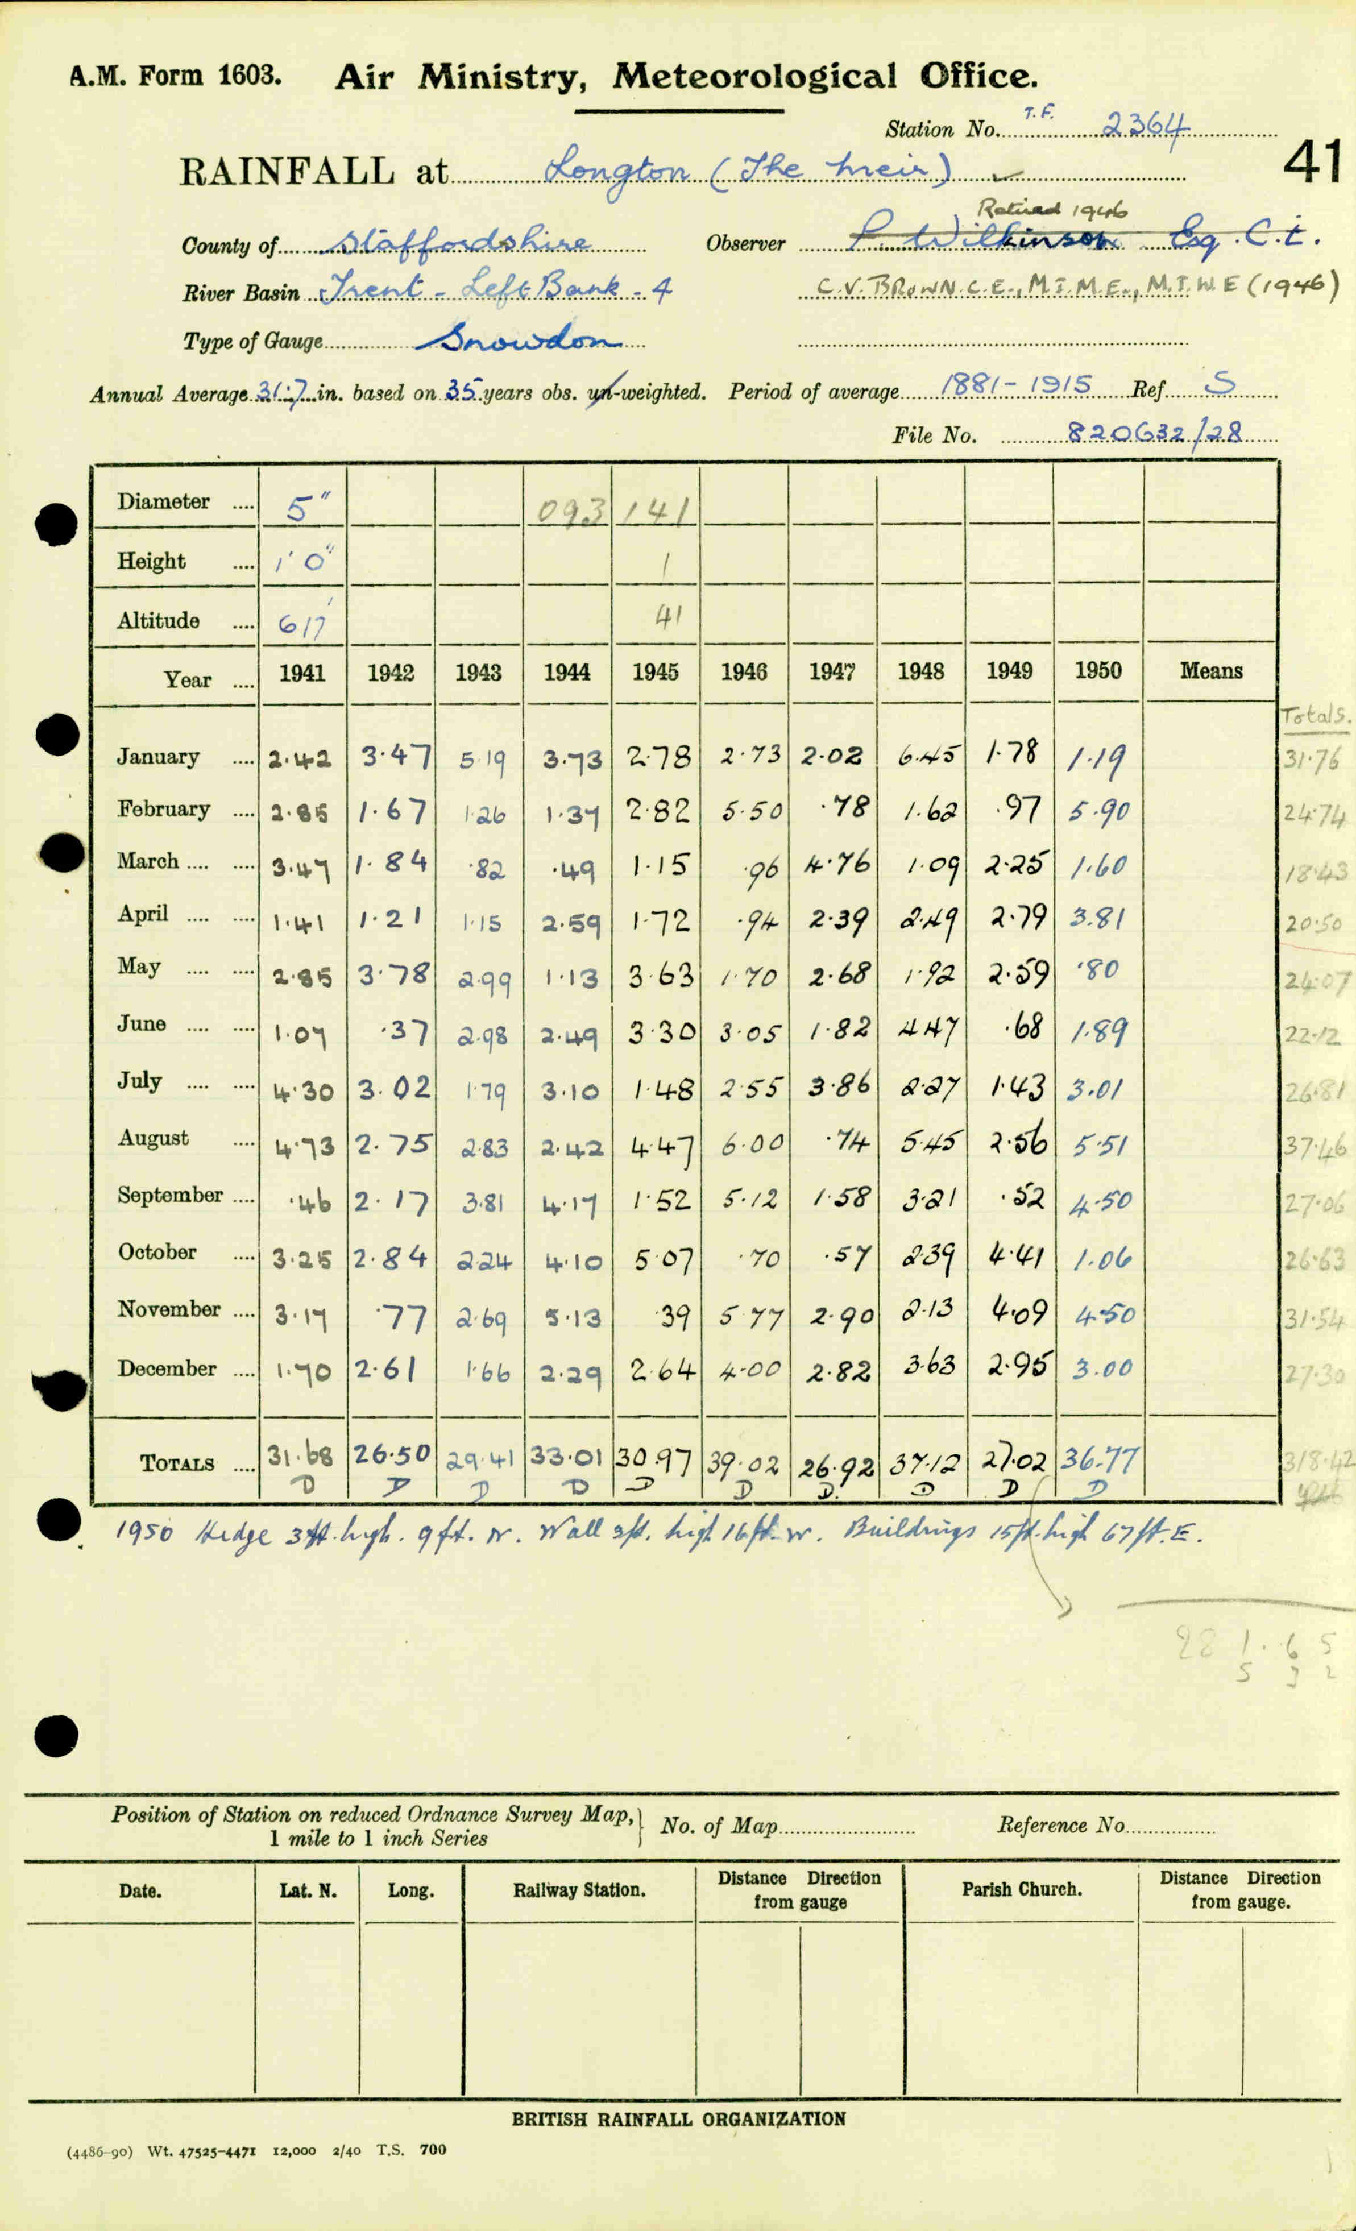 A.M. Form 1603. Air Ministry, Meteorological Office.
Station No. T.F. 2364
41
RAINFALL at Longton (The Meir) ✓
Retired 1946
County of Staffordshire Observer P. Wilkinson Esq. C.E.
River Basin Trent - Left Bank - 4 C.V. BROWN. C.E., M.I.M.E., M.I.W.E (1946)
Type of Gauge Snowdon
Annual Average 31.7 in. based on 35 years obs. un-weighted. Period of average 1881-1915 Ref. S
File No. 820632/28
Diameter .... 5" 093 141
Height .... 1' 0" 1
Altitude .... 617' 41
Year .... 1941 1942 1943 1944 1945 1946 1947 1948 1949 1950 Means
Totals.
January .... 2.42 3.47 5.19 3.73 2.78 2.73 2.02 6.45 1.78 1.19 31.76
February .... 2.85 1.67 1.26 1.37 2.82 5.50 .78 1.62 .97 5.90 24.74
March .... .... 3.47 1.84 .82 .49 1.15 .96 4.76 1.09 2.25 1.60 18.43
April .... .... 1.41 1.21 1.15 2.59 1.72 .94 2.39 2.49 2.79 3.81 20.50
May .... .... 2.85 3.78 2.99 1.13 3.63 1.70 2.68 1.92 2.59 .80 24.07
June .... .... 1.07 .37 2.98 2.49 3.30 3.05 1.82 4.47 .68 1.89 22.12
July .... .... 4.30 3.02 1.79 3.10 1.48 2.55 3.86 2.27 1.43 3.01 26.81
August .... 4.73 2.75 2.83 2.42 4.47 6.00 .74 5.45 2.56 5.51 37.46
September .... .46 2.17 3.81 4.17 1.52 5.12 1.58 3.21 .52 4.50 27.06
October .... 3.25 2.84 2.24 4.10 5.07 .70 .57 2.39 4.41 1.06 26.63
November .... 3.17 .77 2.69 5.13 .39 5.77 2.90 2.13 4.09 4.50 31.54
December .... 1.70 2.61 1.66 2.29 2.64 4.00 2.82 3.63 2.95 3.00 27.30
TOTALS .... 31.68 26.50 29.41 33.01 30.97 39.02 26.92 37.12 27.02 36.77 318.42
D D D D D D D. D D D
1950 Hedge 3ft. high. 9ft. N. Wall 3ft. high 16ft. W. Buildings 15ft. high 67ft. E.
28 1. 6 5
5 3 2
Position of Station on reduced Ordnance Survey Map, 1 mile to 1 inch Series No. of Map Reference No.
Date. Lat. N. Long. Railway Station. Distance Direction from gauge Parish Church. Distance Direction from gauge.
BRITISH RAINFALL ORGANIZATION
(4486-90) Wt. 47525-4471 12,000 2/40 T.S. 700